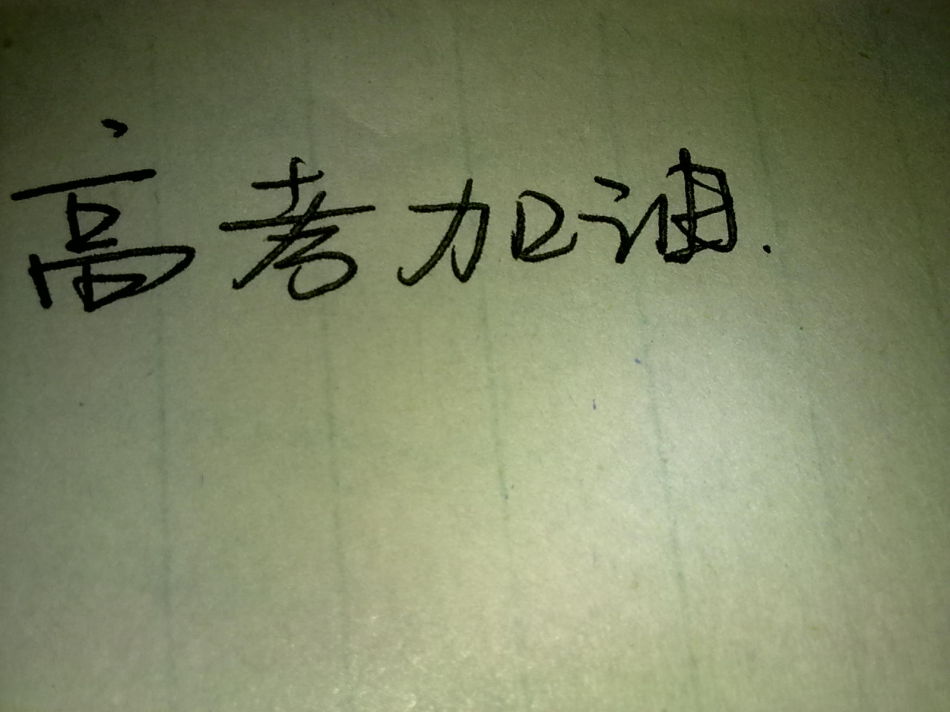 高考加油.